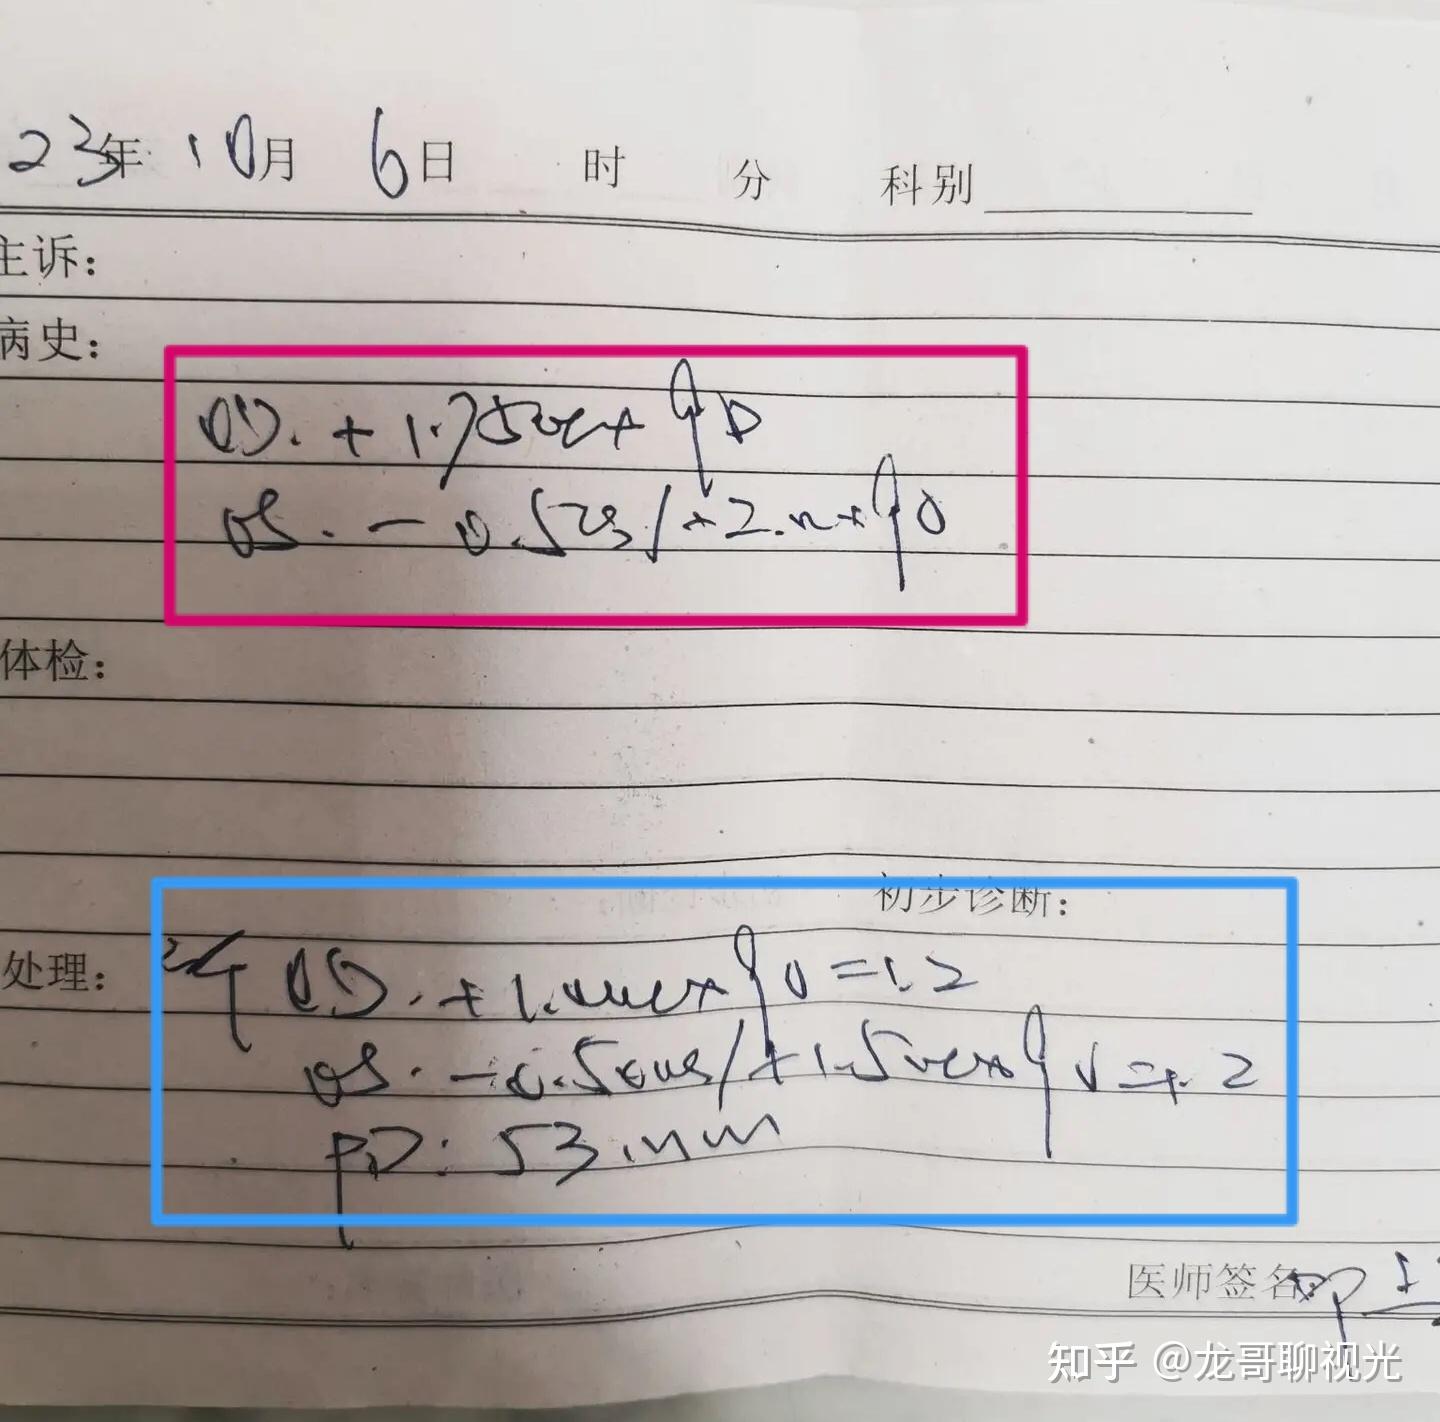 23年 10月 6日 时 分 科别
主诉：
病史：
OD. +1.75DC×90
OS. -0.5DS/+2.00×90
体检：
初步诊断：
处理： OD. +1.00DC×90=1.2
OS. -0.50DS/+1.50DC×90=1.2
PD: 53mm
医师签名
知乎 @龙哥聊视光